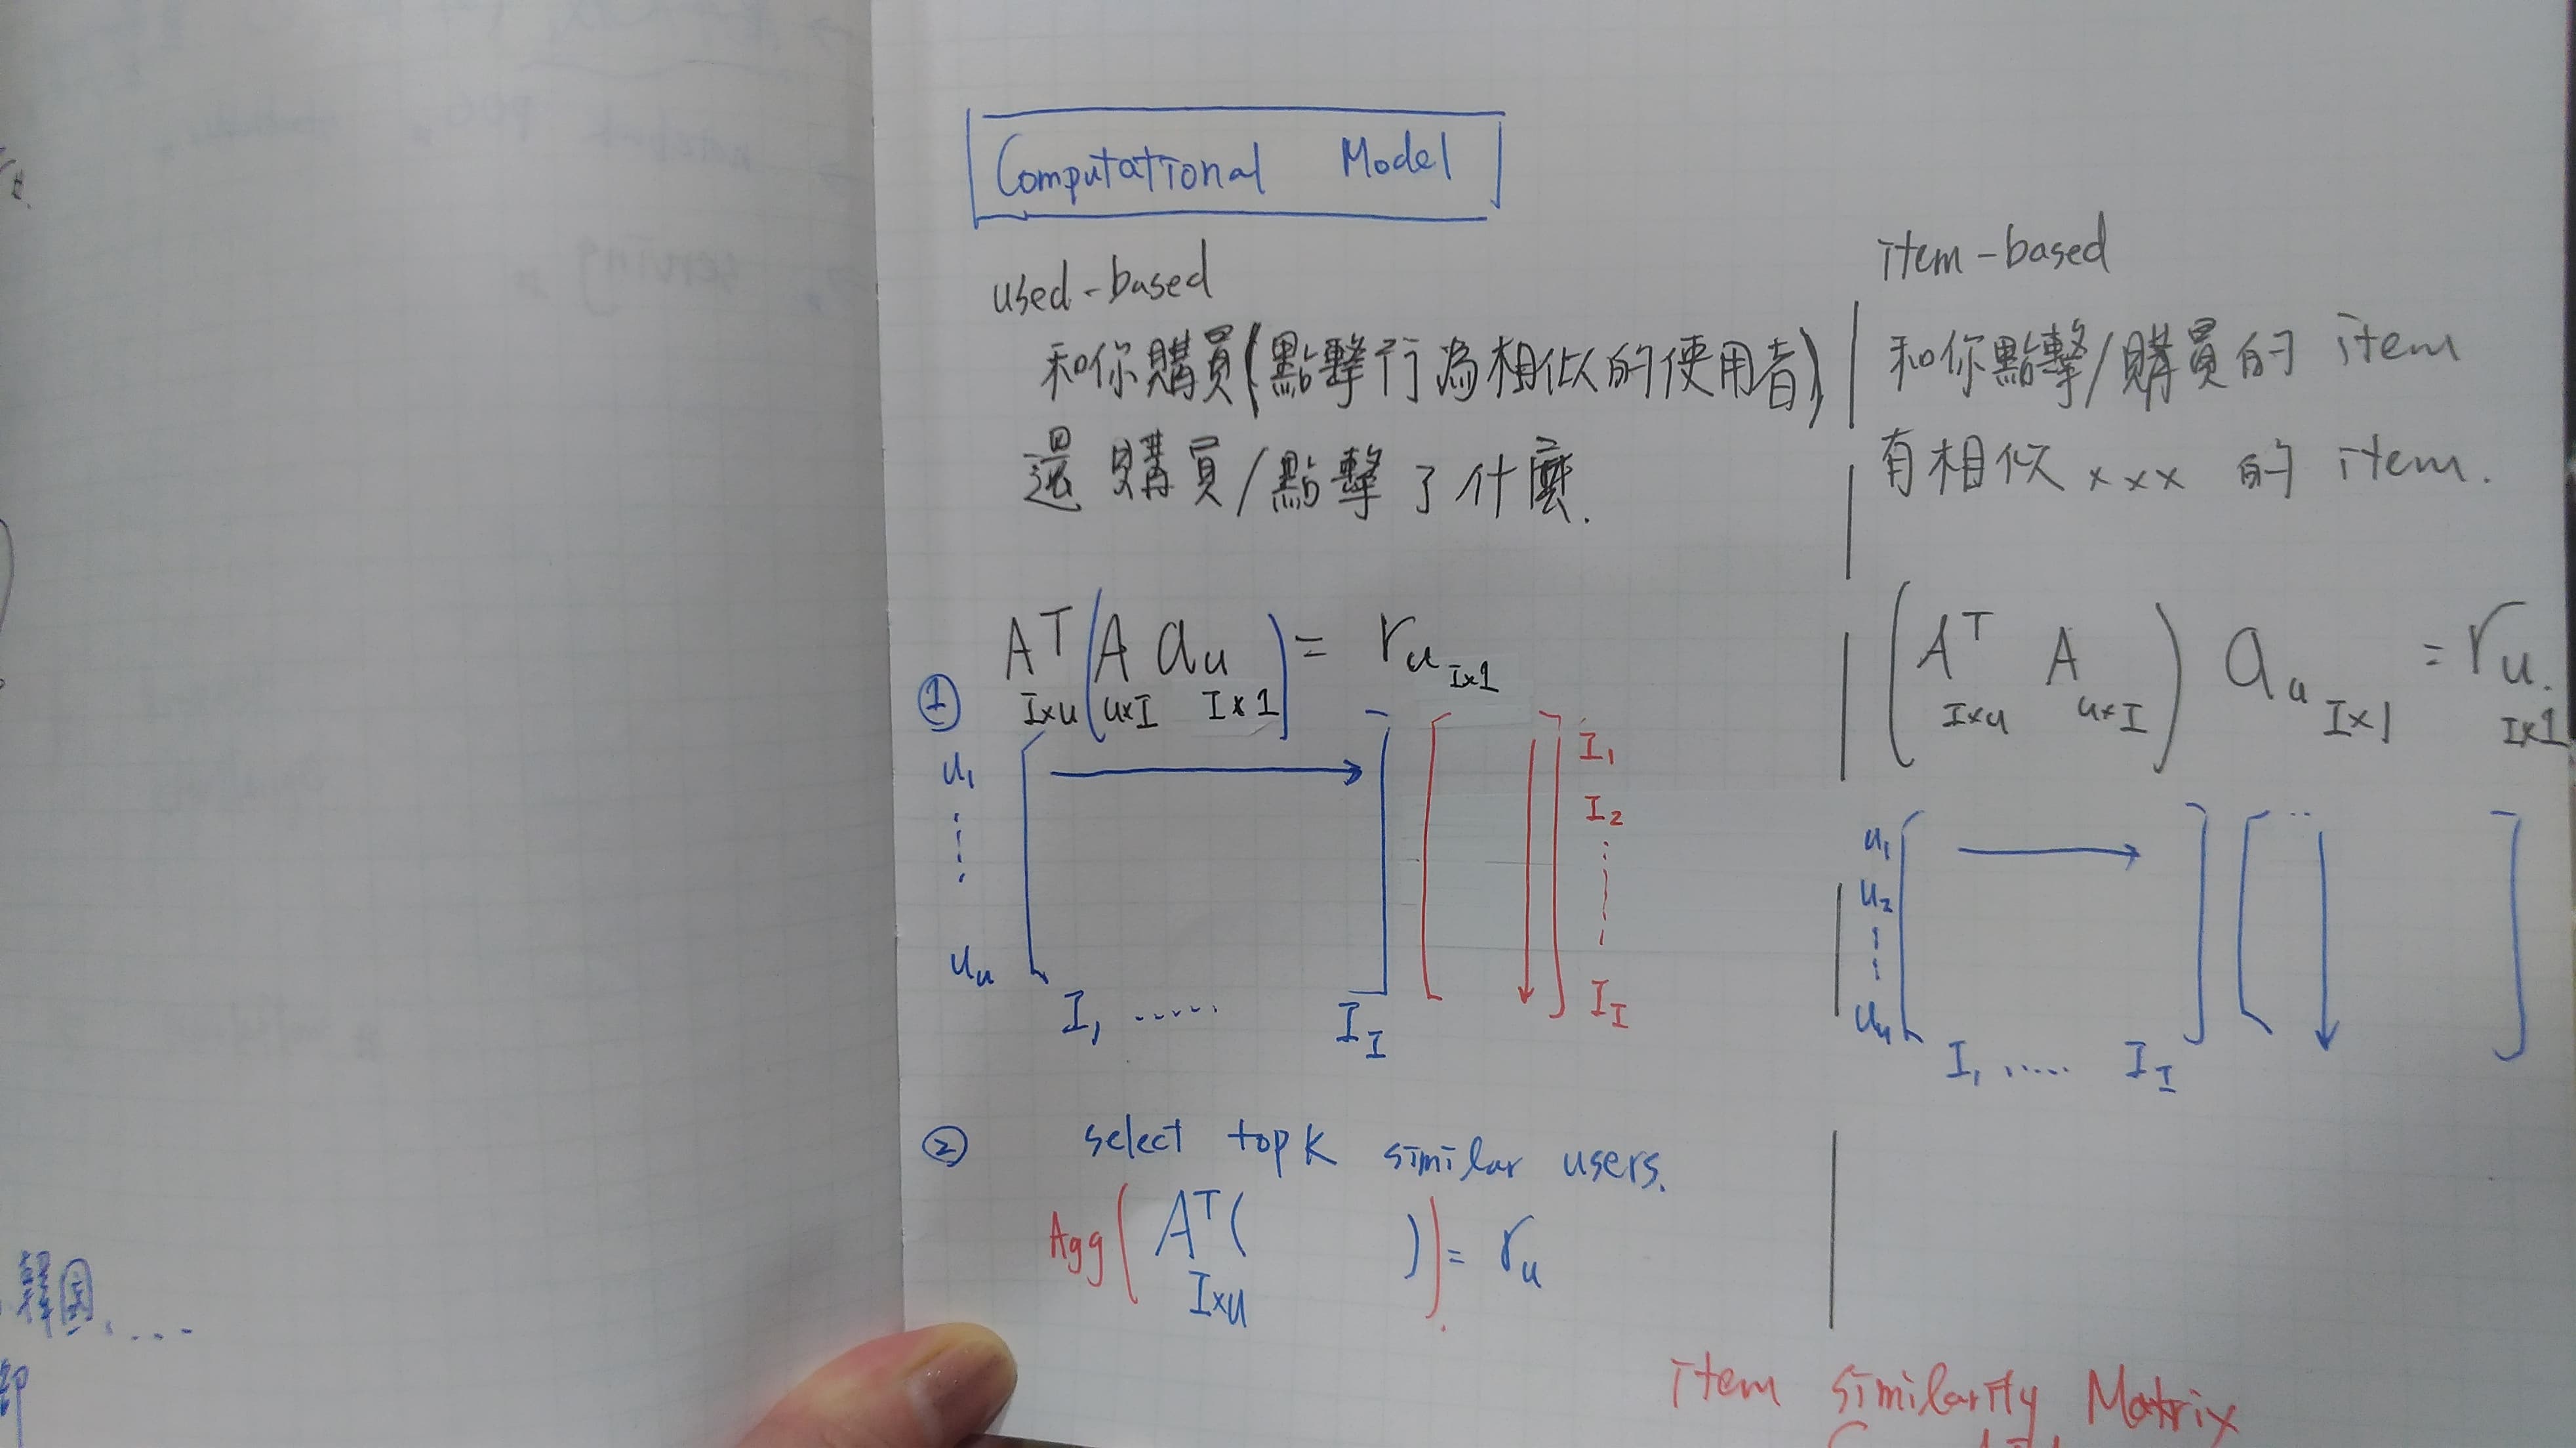 Computational Model
used-based
和你購買(點擊行為相似的使用者)
還購買/點擊了什麼.
① Aᵀ(A aᵤ) = rᵤ I×1
I×u u×I I×1
u₁
⋮
uᵤ
I₁ ...... I_I
I₁
I₂
⋮
I_I
② select top K similar users.
Agg(Aᵀ( )) = rᵤ
I×u
item-based
和你點擊/購買的 item
有相似 xxx 的 item.
(Aᵀ A) aᵤ = rᵤ.
I×u u×I I×1 I×1
u₁
u₂
⋮
uᵤ
I₁ ..... I_I
item similarity Matrix
韓国....